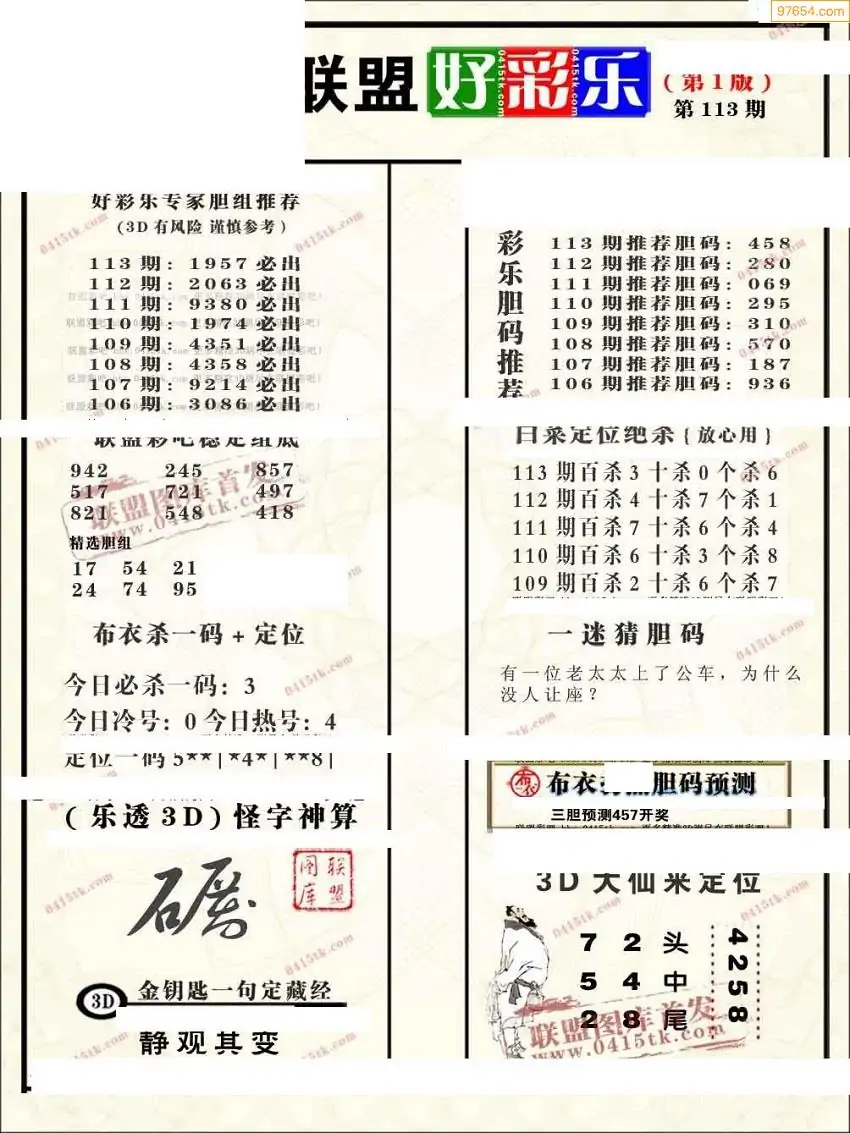 97654.com
联盟好彩乐
(第1版)
第113期
好彩乐专家胆组推荐
(3D有风险 谨慎参考)
113期: 1957必出
112期: 2063必出
111期: 9380必出
110期: 1974必出
109期: 4351必出
108期: 4358必出
107期: 9214必出
106期: 3086必出
联盟彩吧稳定组底
942 245 857
517 721 497
821 548 418
精选胆组
17 54 21
24 74 95
布衣杀一码+定位
今日必杀一码: 3
今日冷号: 0 今日热号: 4
定位一码 5**|*4*|**8|
(乐透3D)怪字神算
联盟图库
3D 金钥匙一句定藏经
静观其变
彩乐胆码推荐
113期推荐胆码: 458
112期推荐胆码: 280
111期推荐胆码: 069
110期推荐胆码: 295
109期推荐胆码: 310
108期推荐胆码: 570
107期推荐胆码: 187
106期推荐胆码: 936
白菜定位绝杀{放心用}
113期百杀3十杀0个杀6
112期百杀4十杀7个杀1
111期百杀7十杀6个杀4
110期百杀6十杀3个杀8
109期百杀2十杀6个杀7
一迷猜胆码
有一位老太太上了公车，为什么
没人让座？
布衣 胆码预测
三胆预测457开奖
3D大仙来定位
7 2 头
5 4 中
2 8 尾
4258
联盟图库首发
www.0415tk.com